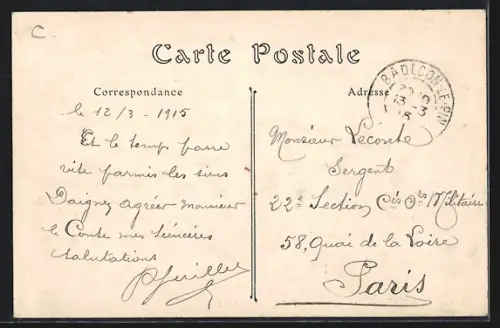 C
Carte Postale
Correspondance
Adresse
BADECON-LE-PIN
le 12/3 - 1915
Et le temps passe
vite parmis les siens
Daignez agréer monsieur
le Conte mes scincères
salutations
Monsieur Leconte
Sergent
22e Section Cis Ors Militaire
58, Quai de la Loire
Paris